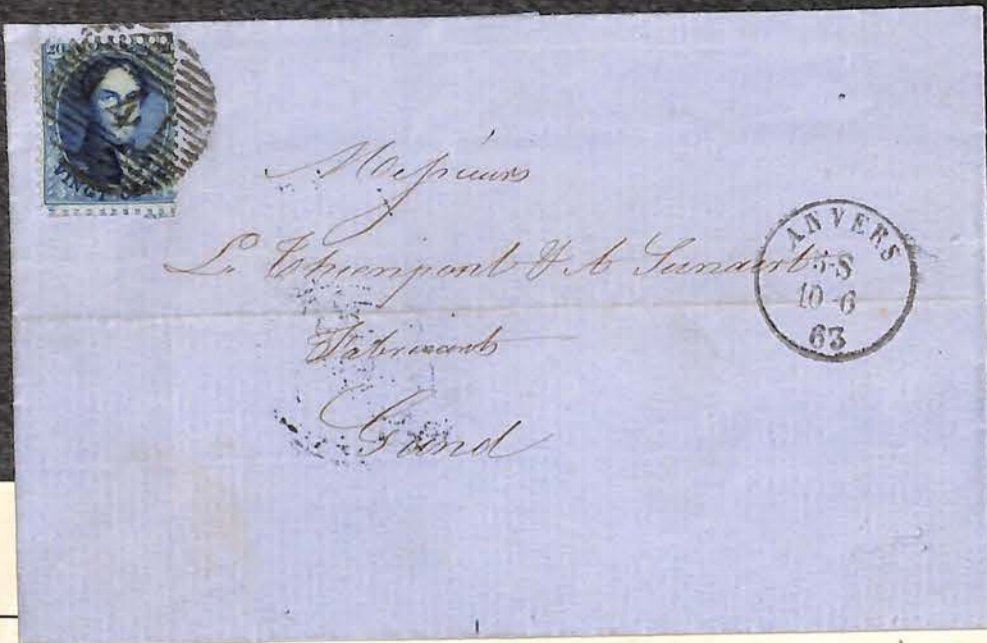 20
VINGT
Messieurs
L. Thienpont & A Sunaert
Fabricants
Gand
ANVERS
5-S
10-6
63